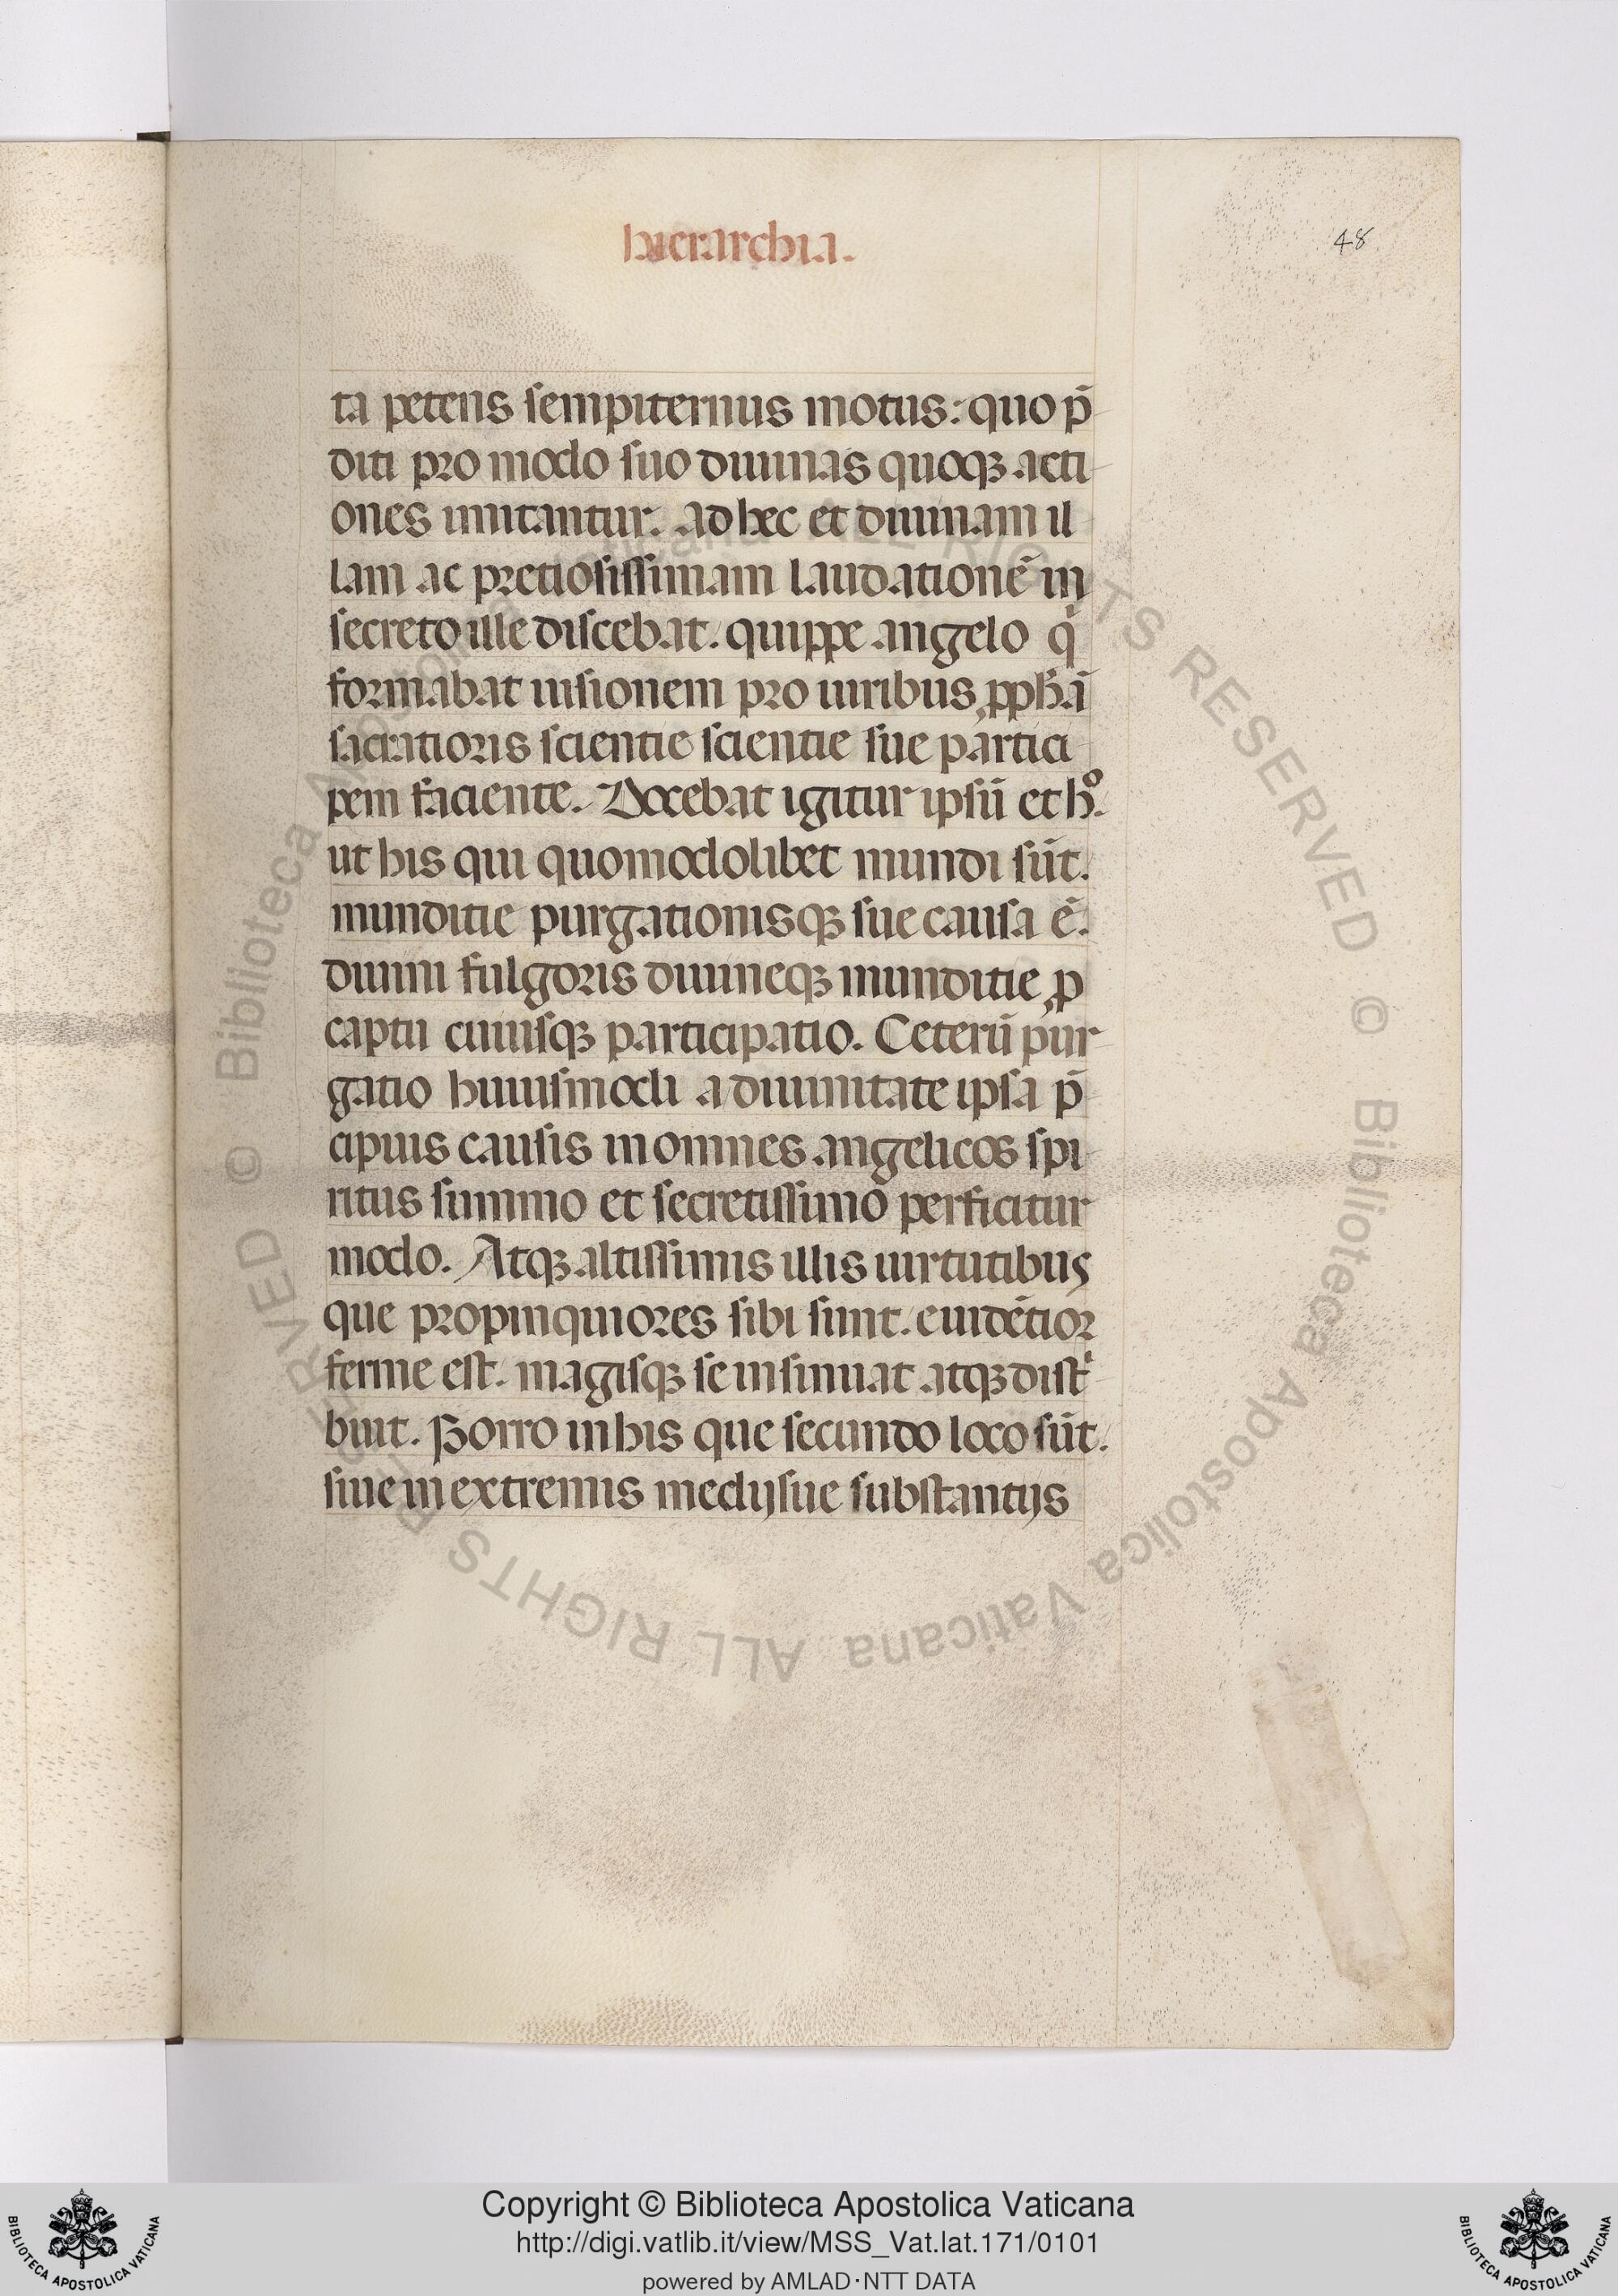 hierarchia.
48
ta petens sempiternus motus: quo p̄
diti pro modo suo diuinas quoqꝫ acti
ones imitantur. Ad hec et diuinam il
lam ac pretiosissimam laudationē in
secreto ille discebat. quippe angelo qͥ
formabat uisionem pro uiribus ꝓpħā
sacratioris scientie scientie sue partici
pem faciente. Docebat igitur ipsū et hͦ.
ut his qui quomodolibet mundi sūt.
munditie purgationisqꝫ sue causa ē.
diuini fulgoris diuineqꝫ munditie ꝓ
captu cuiusqꝫ participatio. Ceterū pur
gatio huiusmodi a diuinitate ipsa p̄
cipuis causis in omnes angelicos spi
ritus summo et secretissimo perficitur
modo. Atqꝫ altissimis illis uirtutibus
que propinquiores sibi sunt. euidētior
ferme est. magisqꝫ se insinuat atqꝫ distͥ
buit. Porro in his que secundo loco sūt.
siue in extremis medijsue substantijs
© Biblioteca Apostolica Vaticana ALL RIGHTS RESERVED © Biblioteca Apostolica Vaticana ALL RIGHTS RESERVED
BIBLIOTECA APOSTOLICA VATICANA
Copyright © Biblioteca Apostolica Vaticana
http://digi.vatlib.it/view/MSS_Vat.lat.171/0101
powered by AMLAD·NTT DATA
BIBLIOTECA APOSTOLICA VATICANA